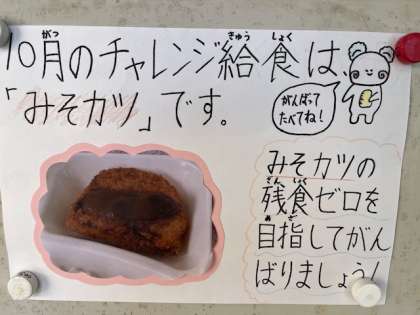 10月のチャレンジ給食は、
「みそカツ」です。
がんばって
たべてね！
みそカツの
残食ゼロを
目指してがん
ばりましょう！